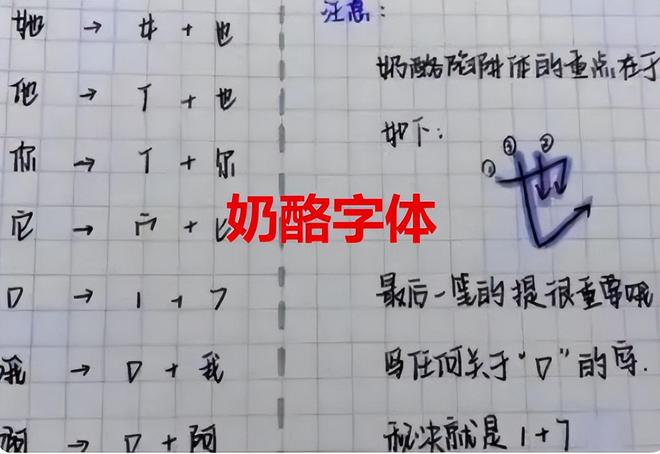 她 → 女 + 也
他 → 亻 + 也
你 → 亻 + 尔
它 → 宀 +
口 → 1 + 7
哦 → 口 + 我
啊 → 口 + 阿
注意：
奶酪陷阱体的重点在于
如下：
① ③ ② 也
最后一笔的提很重要哦
写任何关于“口”的字.
秘诀就是 1 + 7
奶酪字体